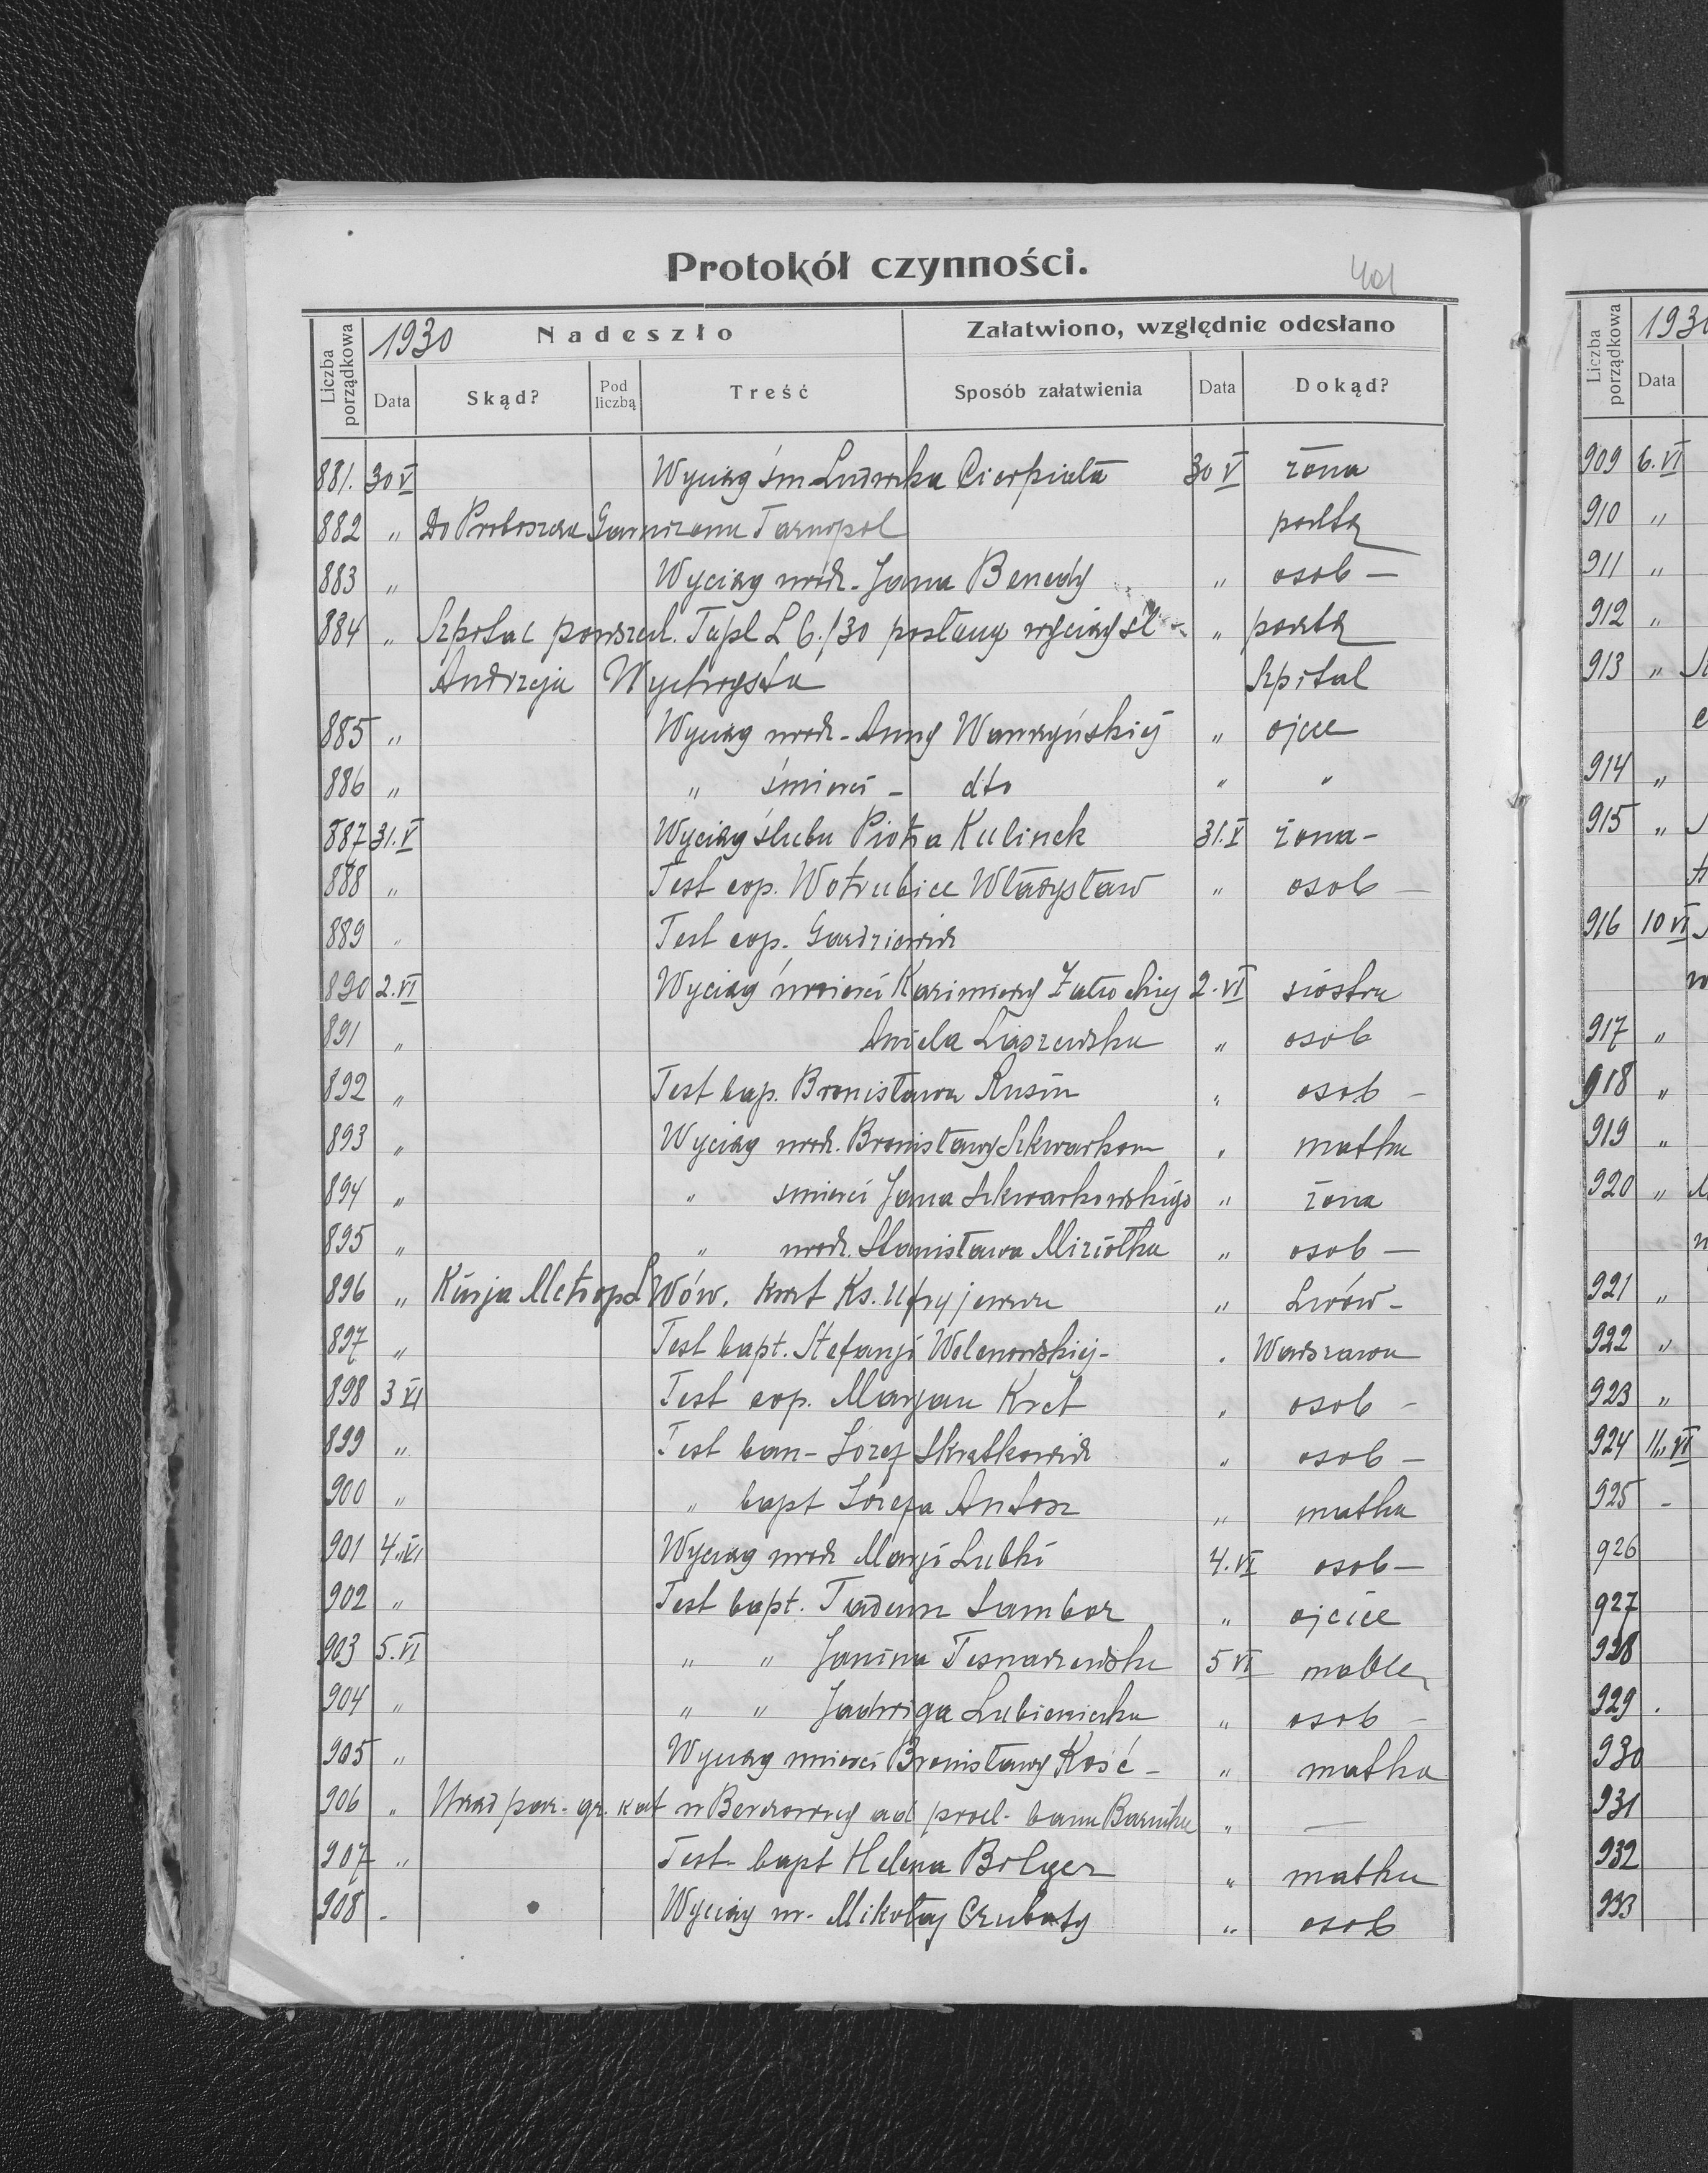 Protokół czynności.
401
Liczba porządkowa
1930 Nadeszło
Załatwiono, względnie odesłano
Data Skąd? Pod liczbą Treść Sposób załatwienia Data Dokąd?
881. 30 V Wyciąg śm Ludwika Cierpiała 30 V żona
882 „ Do Proboszcza Garnizonu Tarnopol pocztą
883 „ Wyciąg urodz. Jana Benedy „ osob —
884 „ Szpital powszech. Tapl L 6./30 posłany wyciąg śl „ pocztą
Andrzeja Wychrysta Szpital
885 „ Wyciąg urodz. Anny Wawrzyńskiej „ ojciec
886 „ „ śmierci - dto „ „
887 31. V Wyciąg ślubu Piotra Kulinek 31. V żona -
888 „ Test cop. Wotrubiec Władysław „ osob —
889 „ Test cop.
890 2. VI Wyciąg śmierci Kazimierz 2. VI siostra
891 „ Aniela Liaszewska „ osob
892 „ Test bap. Bronisława Rusin „ osob -
893 „ Wyciąg urodz. Bronisławy Szkwarkow „ matka
894 „ „ smierci Jana Szkwarkowskigo „ żona
895 „ „ urodz. Stanisława Miziołka „ osob —
896 „ Kurja Metropol Lwów. kwit Ks. „ Lwów -
897 „ Test bapt. Stefanji Wolenowskiej - „ Warszawa
898 3 VI Test cop. Marjan Kret „ osob -
899 „ Test ban - Józef „ osob —
900 „ „ bapt Józefa Antosz „ matka
901 4 „ VI Wyciąg urodz Marji Lubki 4. VI osob —
902 „ Test bapt. Tadeusz Sambor „ ojciec
903 5. VI „ „ Janina 5 VI
904 „ „ „ Jadwiga Lubieniecka „ osob -
905 „ Wyciąg śmierci Bronisławy Kość - „ matka
906 „ Urząd par. gr. kat w Berezowicy ad „ —
907 „ Test bapt Helena Bolger „ matka
908 - Wyciąg ur. Mikołaj Czubaty „ osob
Liczba porządkowa
1930
Data
909 6. VI
910 „
911 „
912 „
913 „
914 „
915 „
916 10 VI
917 „
918 „
919 „
920 „
921 „
922 „
923 „
924 11 „ VI
925 -
926
927
928
929 .
930
931
932
933